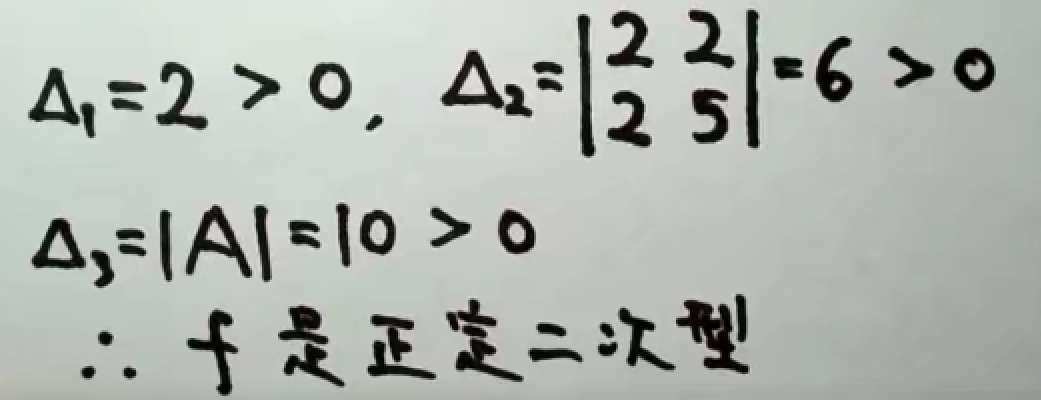 Δ₁=2 > 0, Δ₂=|2 2; 2 5|=6 > 0
Δ₃=|A|=10 > 0
∴ f 是正定二次型